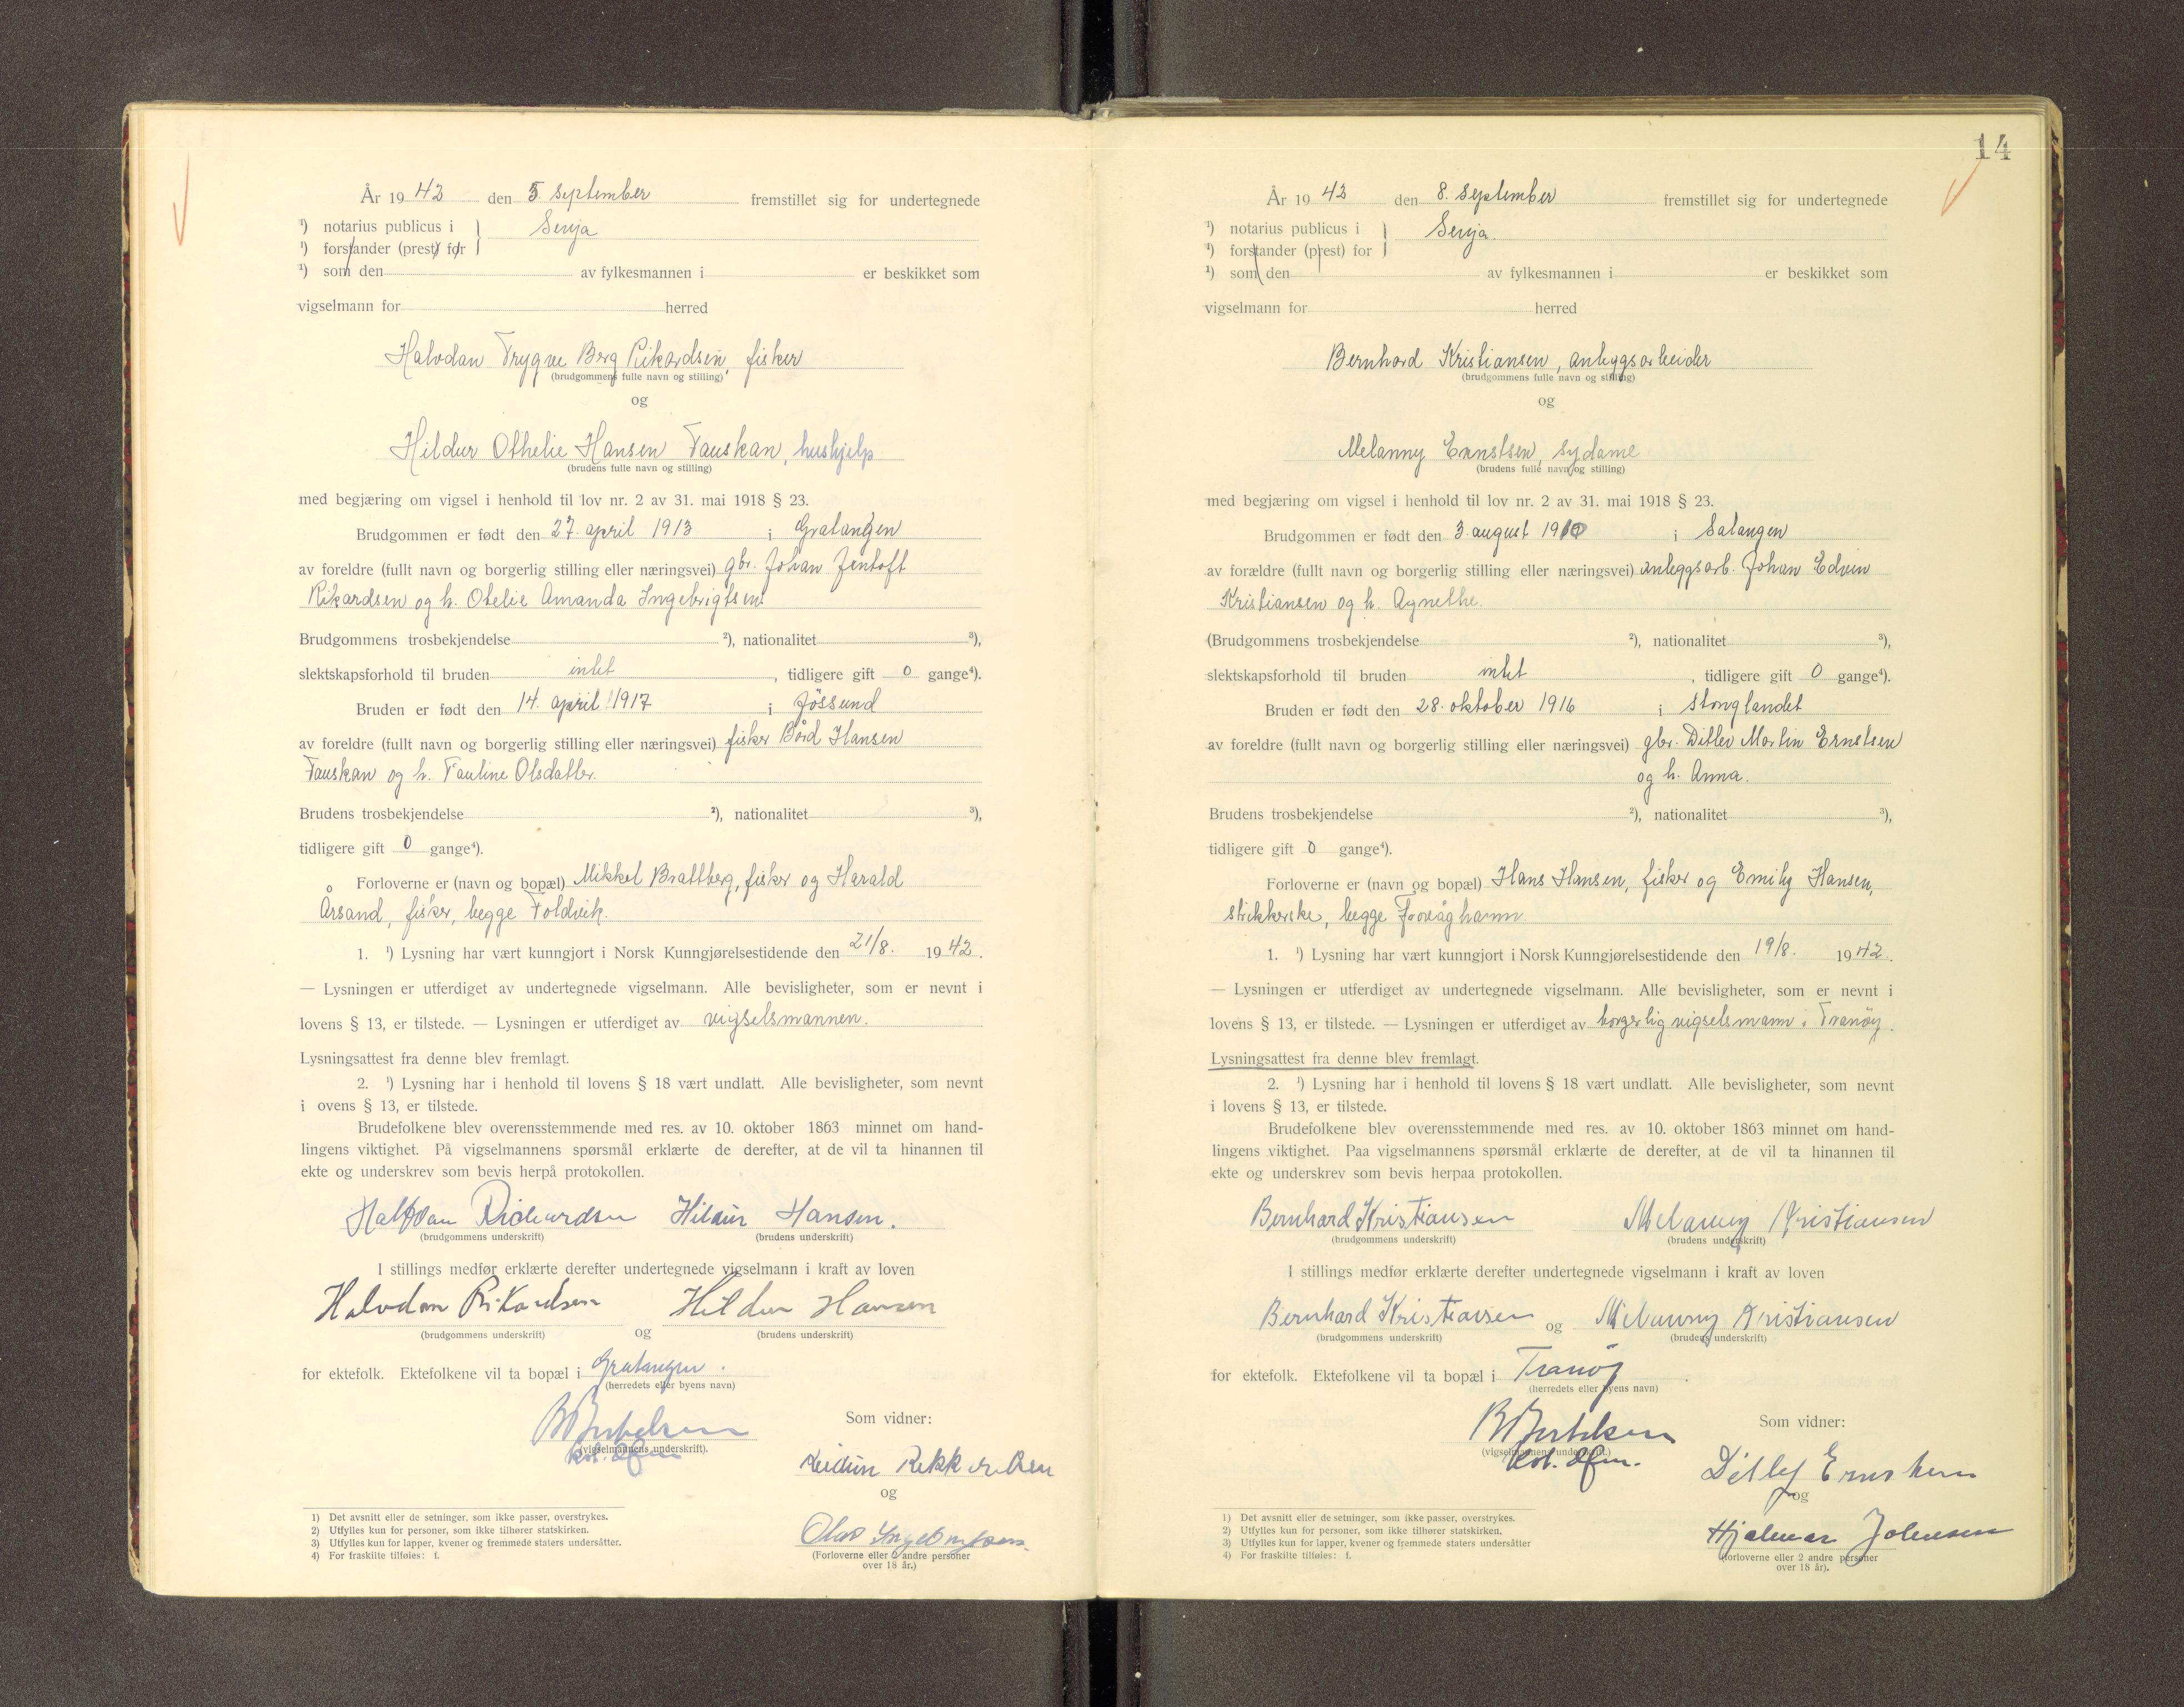 År 19 42 den 5. september fremstillet sig for undertegnede
¹) notarius publicus i } Senja
¹) forstander (prest) for
¹) som den av fylkesmannen i er beskikket som
vigselmann for herred
Halvdan Trygve Berg Rikardsen, fisker
(brudgommens fulle navn og stilling)
og
Hildur Othelie Hansen Tauskan, hushjelp
(brudens fulle navn og stilling)
med begjæring om vigsel i henhold til lov nr. 2 av 31. mai 1918 § 23.
Brudgommen er født den 27. april 1913 i Gratangen
av foreldre (fullt navn og borgerlig stilling eller næringsvei) gbr. Johan Jentoft
Rikardsen og h. Otelie Amanda Ingebrigtsen
Brudgommens trosbekjendelse ²), nationalitet ³),
slektskapsforhold til bruden intet, tidligere gift 0 gange⁴).
Bruden er født den 14. april 1917 i Jössund
av foreldre (fullt navn og borgerlig stilling eller næringsvei) fisker Bård Hansen
Tauskan og h. Pauline Olsdatter.
Brudens trosbekjendelse ²), nationalitet ³),
tidligere gift 0 gange⁴).
Forloverne er (navn og bopæl) Mikkel Brattberg, fisker og Harald
Årsand, fisker, begge Foldvik.
1. ¹) Lysning har vært kunngjort i Norsk Kunngjørelsestidende den 21/8. 19 42.
— Lysningen er utferdiget av undertegnede vigselmann. Alle bevisligheter, som er nevnt i
lovens § 13, er tilstede. — Lysningen er utferdiget av vigselsmannen.
Lysningsattest fra denne blev fremlagt.
2. ¹) Lysning har i henhold til lovens § 18 vært undlatt. Alle bevisligheter, som nevnt
i ovens § 13, er tilstede.
Brudefolkene blev overensstemmende med res. av 10. oktober 1863 minnet om hand-
lingens viktighet. På vigselmannens spørsmål erklærte de derefter, at de vil ta hinannen til
ekte og underskrev som bevis herpå protokollen.
Halvdan Richardsen Hildur Hansen.
(brudgommens underskrift) (brudens underskrift)
I stillings medfør erklærte derefter undertegnede vigselmann i kraft av loven
Halvdan Rikardsen Hildur Hansen
(brudgommens underskrift) og (brudens underskrift)
for ektefolk. Ektefolkene vil ta bopæl i Gratangen.
(herredets eller byens navn)
Som vidner:
(vigselmannens underskrift).
og
Olav Ingebrigtsen.
(Forloverne eller 2 andre personer
over 18 år.)
1) Det avsnitt eller de setninger, som ikke passer, overstrykes.
2) Utfylles kun for personer, som ikke tilhører statskirken.
3) Utfylles kun for lapper, kvener og fremmede staters undersåtter.
4) For fraskilte tilføies: f.
14
År 19 42 den 8. september fremstillet sig for undertegnede
¹) notarius publicus i } Senja.
¹) forstander (prest) for
¹) som den av fylkesmannen i er beskikket som
vigselmann for herred
Bernhard Kristiansen, anleggsarbeider
(brudgommens fulle navn og stilling)
og
Melanny Ernstsen, sydame
(brudens fulle navn og stilling)
med begjæring om vigsel i henhold til lov nr. 2 av 31. mai 1918 § 23.
Brudgommen er født den 3. august 1910 i Salangen
av forældre (fullt navn og borgerlig stilling eller næringsvei) anleggsarb. Johan Edvin
Kristiansen og h. Agnethe.
(Brudgommens trosbekjendelse ²), nationalitet ³),
slektskapsforhold til bruden intet, tidligere gift 0 gange⁴).
Bruden er født den 28. oktober 1916 i Stonglandet
av foreldre (fullt navn og borgerlig stilling eller næringsvei) gbr. Ditlev Martin Ernstsen
og h. Anna.
Brudens trosbekjendelse ²), nationalitet ³),
tidligere gift 0 gange⁴).
Forloverne er (navn og bopæl) Hans Hansen, fisker og Emily Hansen,
strikkerske, begge Frovåghamn.
1. ¹) Lysning har vært kunngjort i Norsk Kunngjørelsestidende den 19/8. 19 42.
— Lysningen er utferdiget av undertegnede vigselmann. Alle bevisligheter, som er nevnt i
lovens § 13, er tilstede. — Lysningen er utferdiget av borgerlig vigselsmann i Tranøy.
Lysningsattest fra denne blev fremlagt.
2. ¹) Lysning har i henhold til lovens § 18 vært undlatt. Alle bevisligheter, som nevnt
i lovens § 13, er tilstede.
Brudefolkene blev overensstemmende med res. av 10. oktober 1863 minnet om hand-
lingens viktighet. Paa vigselmannens spørsmål erklærte de derefter, at de vil ta hinannen til
ekte og underskrev som bevis herpaa protokollen.
Bernhard Kristiansen Melanny Kristiansen
(brudgommens underskrift) (brudens underskrift)
I stillings medfør erklærte derefter undertegnede vigselmann i kraft av loven
Bernhard Kristiansen og Melanny Kristiansen
(brudgommens underskrift) (brudens underskrift)
for ektefolk. Ektefolkene vil ta bopæl i Tranøy.
(herredets eller byens navn)
Som vidner:
(vigselmannens underskrift.)
Ditlef Ernstsen
og
Hjalmar Johnsen
(forloverne eller 2 andre personer
over 18 år).
1) Det avsnitt eller de setninger, som ikke passer, overstrykes.
2) Utfylles kun for personer, som ikke tilhører statskirken.
3) Utfylles kun for lapper, kvener og fremmede staters undersåtter
4) For fraskilte tilføies: f.